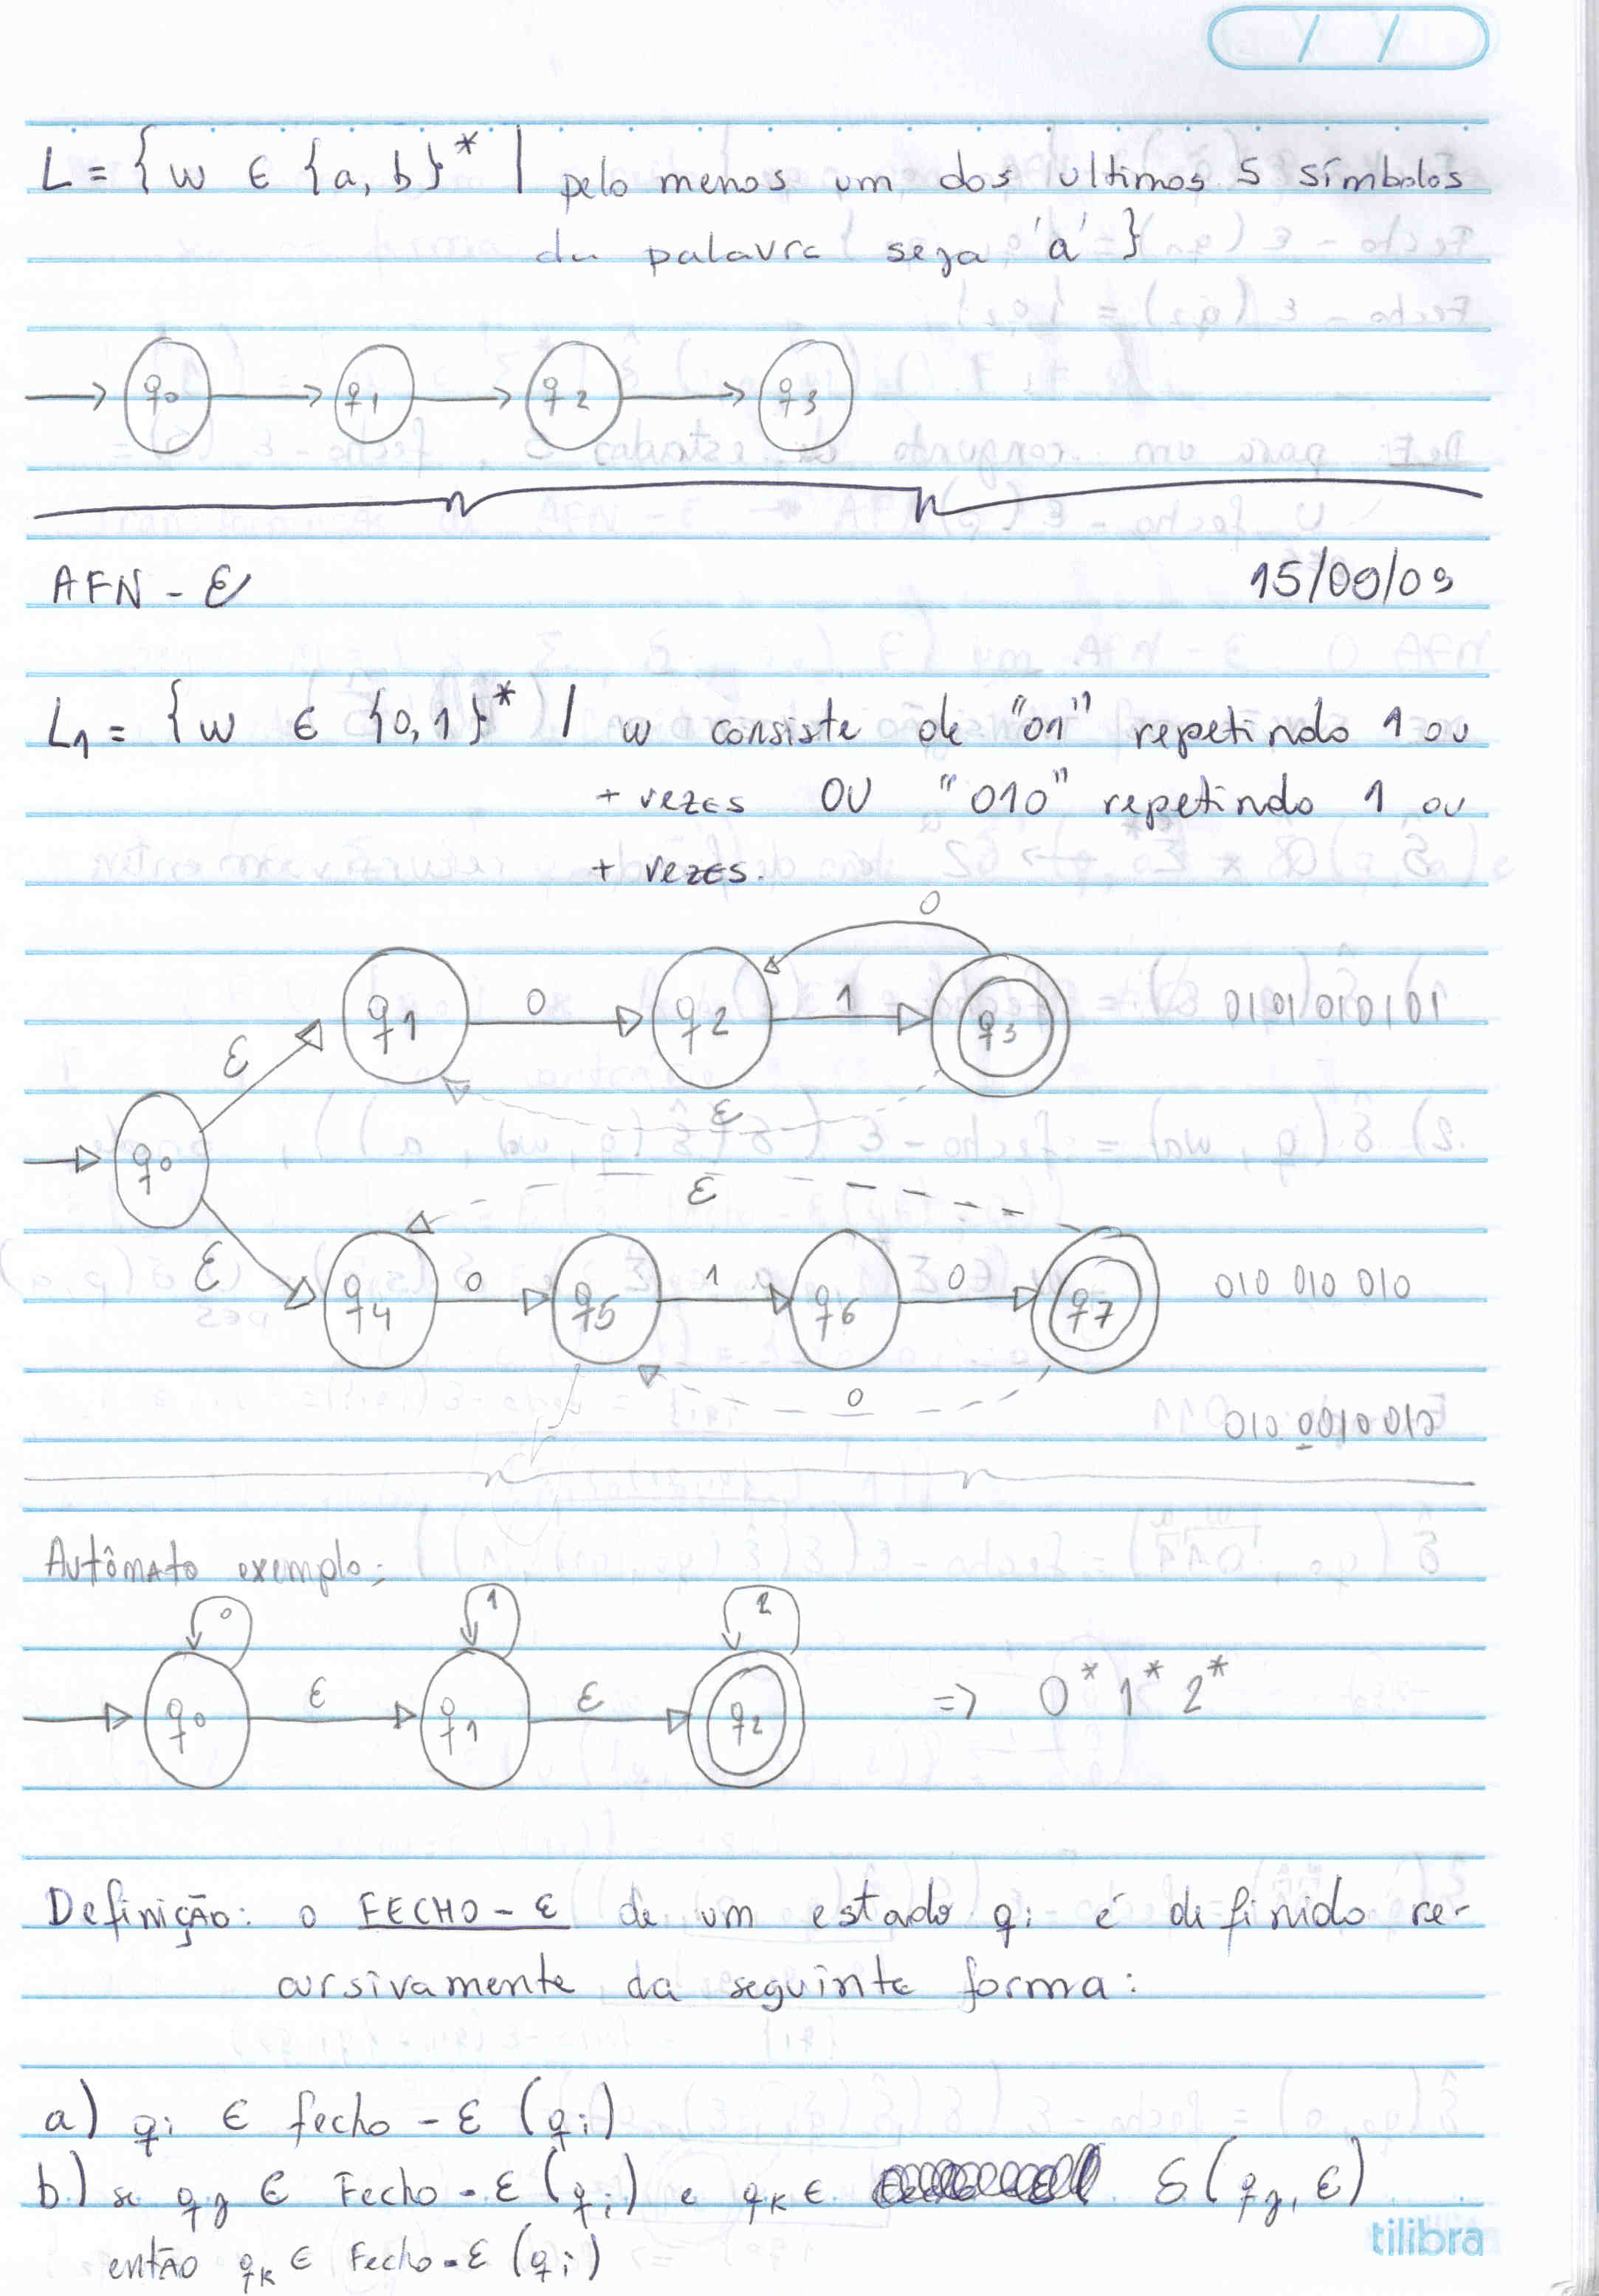 L = {w ∈ {a, b}* | pelo menos um dos ultimos 5 símbolos
da palavra seja 'a' }
q0 q1 q2 q3
AFN - ε 15/09/09
L1 = {w ∈ {0,1}* / w consiste de "01" repetindo 1 ou
+ vezes OU "010" repetindo 1 ou
+ vezes.
0
q1 0 q2 1 q3 0101010101
ε
ε
q0
ε
ε
q4 0 q5 1 q6 0 q7 010 010 010
0
010 0010 010
Autômato exemplo:
0 1 2
q0 ε q1 ε q2 => 0* 1* 2*
Definição: o FECHO - ε de um estado qi é definido re-
cursivamente da seguinte forma:
a) qi ∈ fecho - ε (qi)
b) se qj ∈ Fecho - ε (qi) e qk ∈ δ(qj, ε)
então qk ∈ Fecho - ε (qi)
tilibra